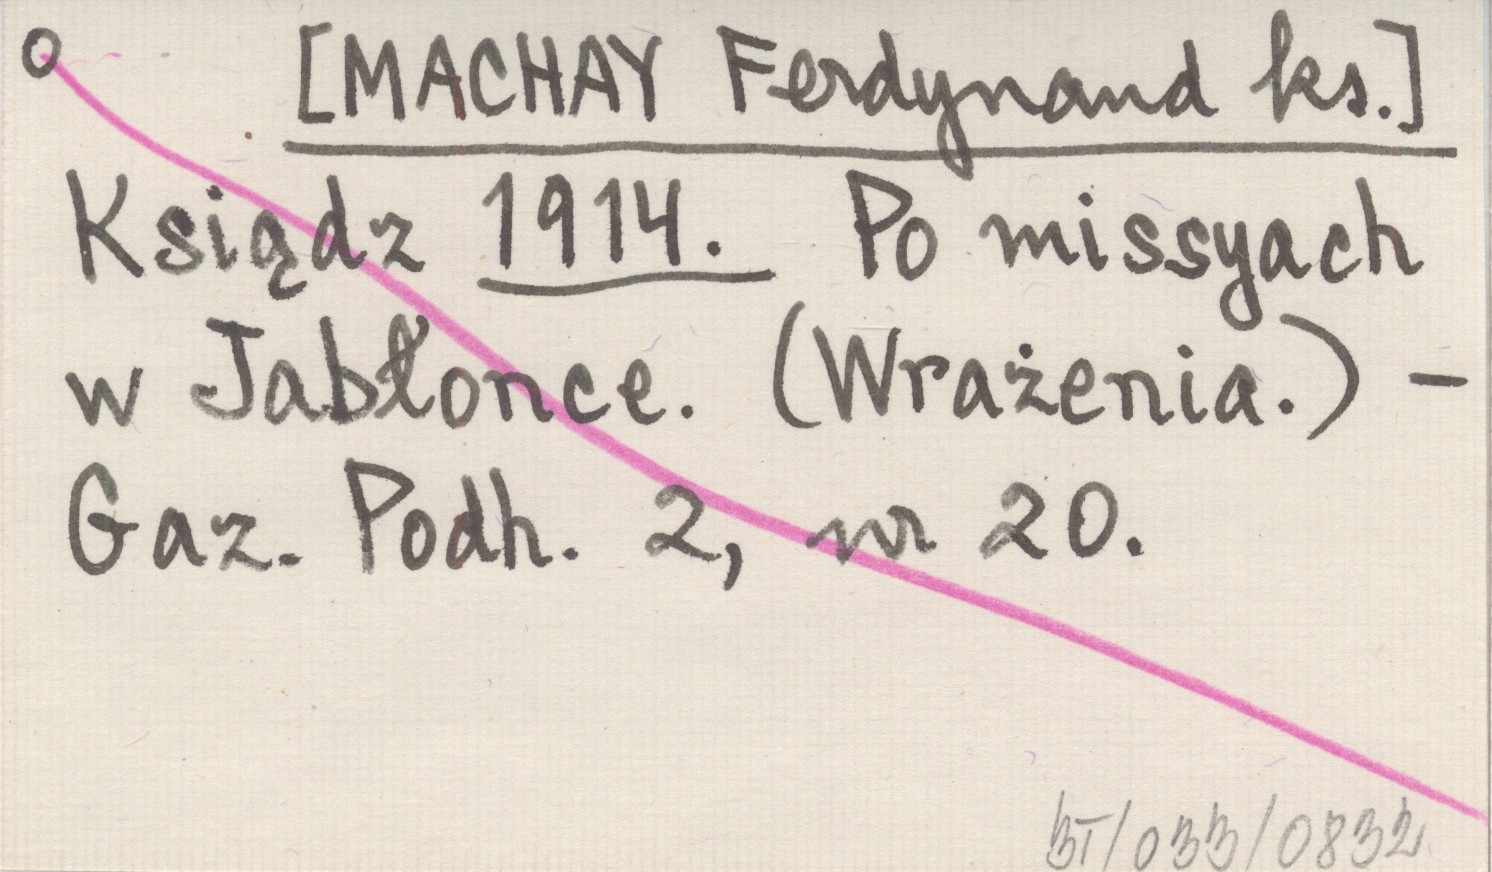 O [MACHAY Ferdynand ks.]
Ksiądz 1914. Po missyach
w Jabłonce. (Wrażenia.) –
Gaz. Podh. 2, nr 20.
BT/033/0832